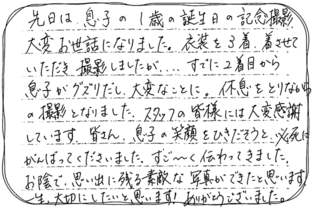 先日は、息子の1歳の誕生日の記念撮影
大変お世話になりました。衣装を3着、着させて
いただき撮影しましたが、... すでに2着目から
息子がグズりだし、大変なことに。休息をとりながら
の撮影となりました。スタッフの皆様には大変感謝
しています。皆さん、息子の笑顔をひきだそうと、必死に
がんばってくださいました。すご〜く伝わってきました。
お陰で、思い出に残る素敵な写真ができたと思います。
一生、大切にしたいと思います! ありがとうございました。